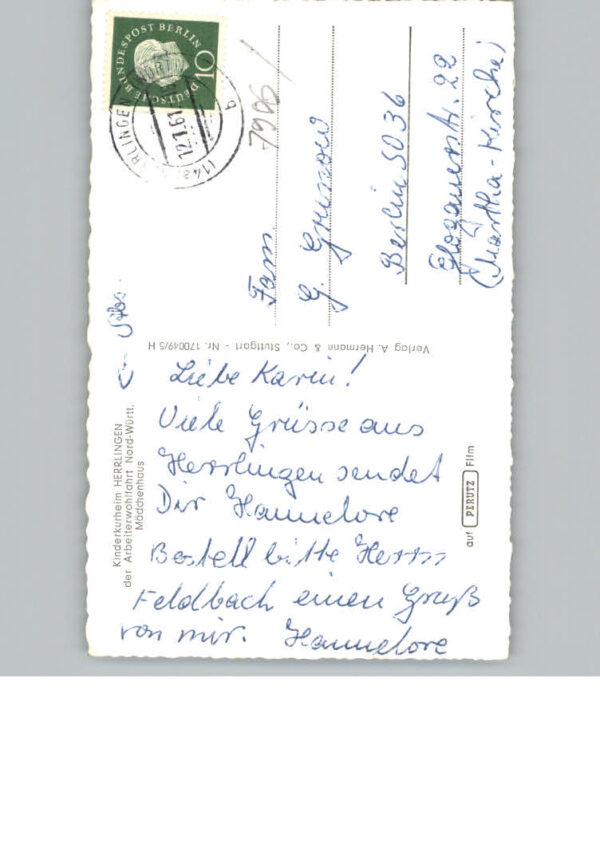 DEUTSCHE BUNDESPOST BERLIN
10
12.1.61
b
7906 /
Fam.
G. Grunow
Berlin SO 36
Glogauerstr. 22
(Martha-Kirche)
Verlag A. Hermann & Co., Stuttgart - Nr. 170049/5 H
Kinderkurheim HERRLINGEN
der Arbeiterwohlfahrt Nord-Württ.
Mädchenhaus
Liebe Karin!
Viele Grüsse aus
Herrlingen sendet
Dir Hannelore
Bestell bitte Herrn
Feldbach einen Gruß
von mir. Hannelore
auf PERUTZ Film